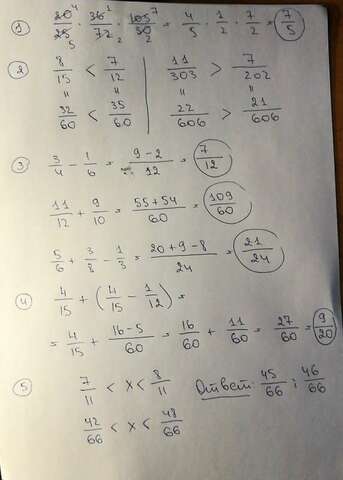 ① 20/25 · 36/72 · 105/30 = 4/5 · 1/2 · 7/2 = 7/5
② 8/15 < 7/12 | 11/303 > 7/202
32/60 < 35/60 | 22/606 > 21/606
③ 3/4 - 1/6 = (9-2)/12 = 7/12
11/12 + 9/10 = (55+54)/60 = 109/60
5/6 + 3/8 - 1/3 = (20+9-8)/24 = 21/24
④ 4/15 + (4/15 - 1/12) =
= 4/15 + (16-5)/60 = 16/60 + 11/60 = 27/60 = 9/20
⑤ 7/11 < x < 8/11 Ответ: 45/66 ; 46/66
42/66 < x < 48/66